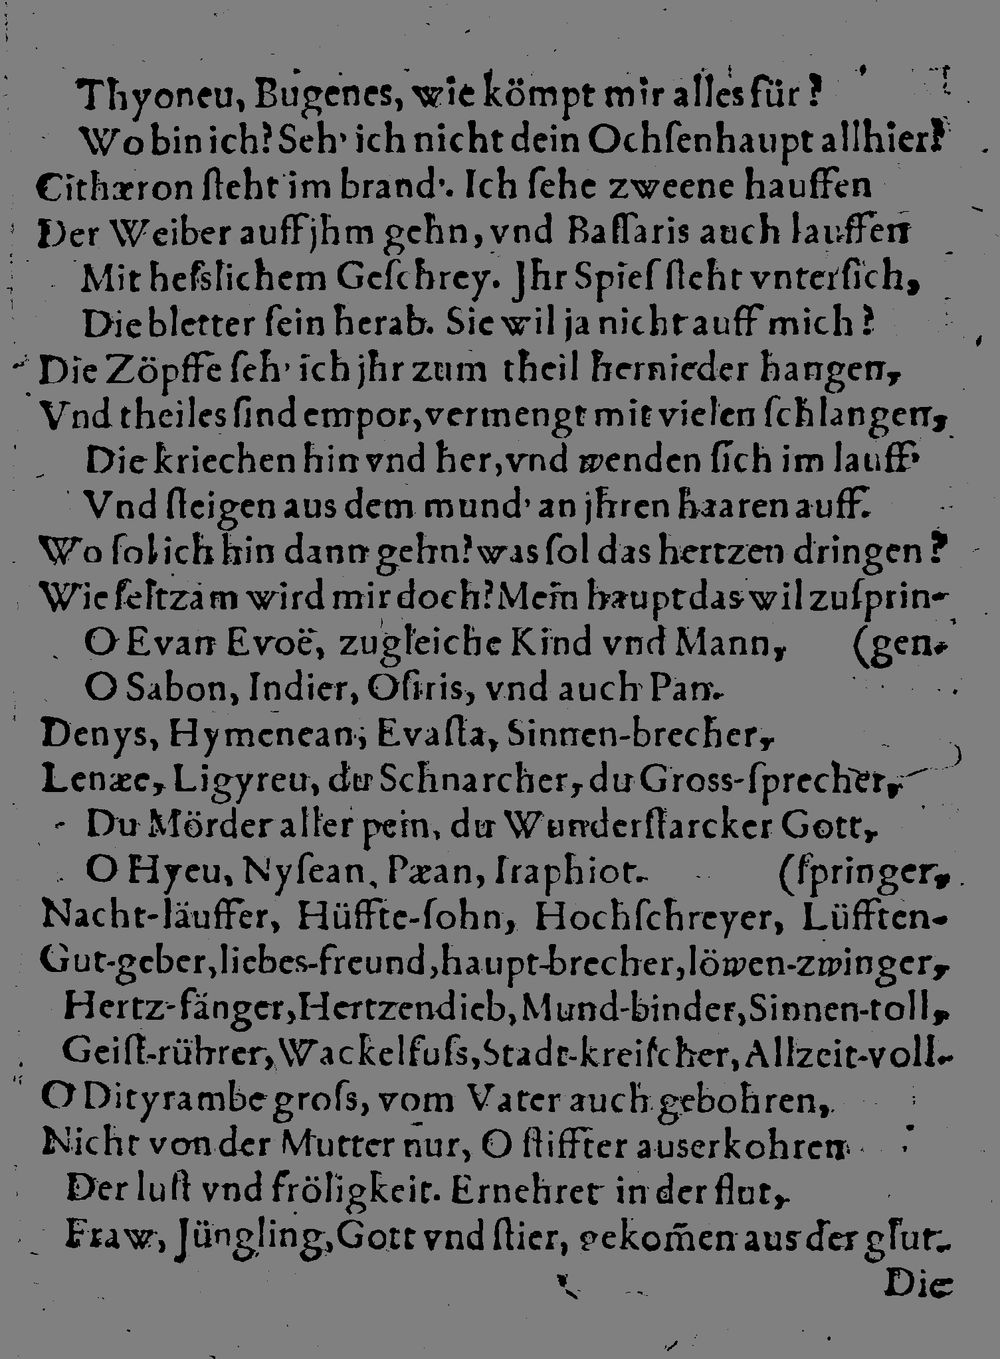 Thyoneu, Bugenes, wie kömpt mir alles für?
Wo bin ich? Seh' ich nicht dein Ochſenhaupt allhier?
Cithæron ſteht im brand'. Ich ſehe zweene hauffen
Der Weiber auff jhm gehn, vnd Baſſaris auch lauffen
Mit heſslichem Geſchrey. Jhr Spieſ ſteht vnterſich,
Die bletter ſein herab. Sie wil ja nicht auff mich?
Die Zöpffe ſeh' ich jhr zum theil hernieder hangen,
Vnd theiles ſind empor, vermengt mit vielen ſchlangen,
Die kriechen hin vnd her, vnd wenden ſich im lauff'
Vnd ſteigen aus dem mund' an jhren haaren auff.
Wo ſol ich hin dann gehn? was ſol das hertzen dringen?
Wie ſeltzam wird mir doch? Mein haupt das wil zuſprin-
O Evan Evoë, zugleiche Kind vnd Mann, (gen.
O Sabon, Indier, Oſiris, vnd auch Pan.
Denys, Hymenean, Evaſta, Sinnen-brecher,
Lenæe, Ligyreu, du Schnarcher, du Gross-ſprecher,
Du Mörder aller pein, du Wunderſtarcker Gott,
O Hyeu, Nyſean, Pæan, Iraphiot. (ſpringer,
Nacht-läuffer, Hüffte-ſohn, Hochſchreyer, Lüfften-
Gut-geber, liebes-freund, haupt-brecher, löwen-zwinger,
Hertz-fänger, Hertzendieb, Mund-binder, Sinnen-toll,
Geiſt-rührer, Wackelfuſs, Stadt-kreiſcher, Allzeit-voll.
O Dityrambe groſs, vom Vater auch gebohren,
Nicht von der Mutter nur, O ſtiffter auserkohren
Der luſt vnd fröligkeit. Ernehret in der flut,
Fraw, Jüngling, Gott vnd ſtier, gekom̃en aus der glut.
Die